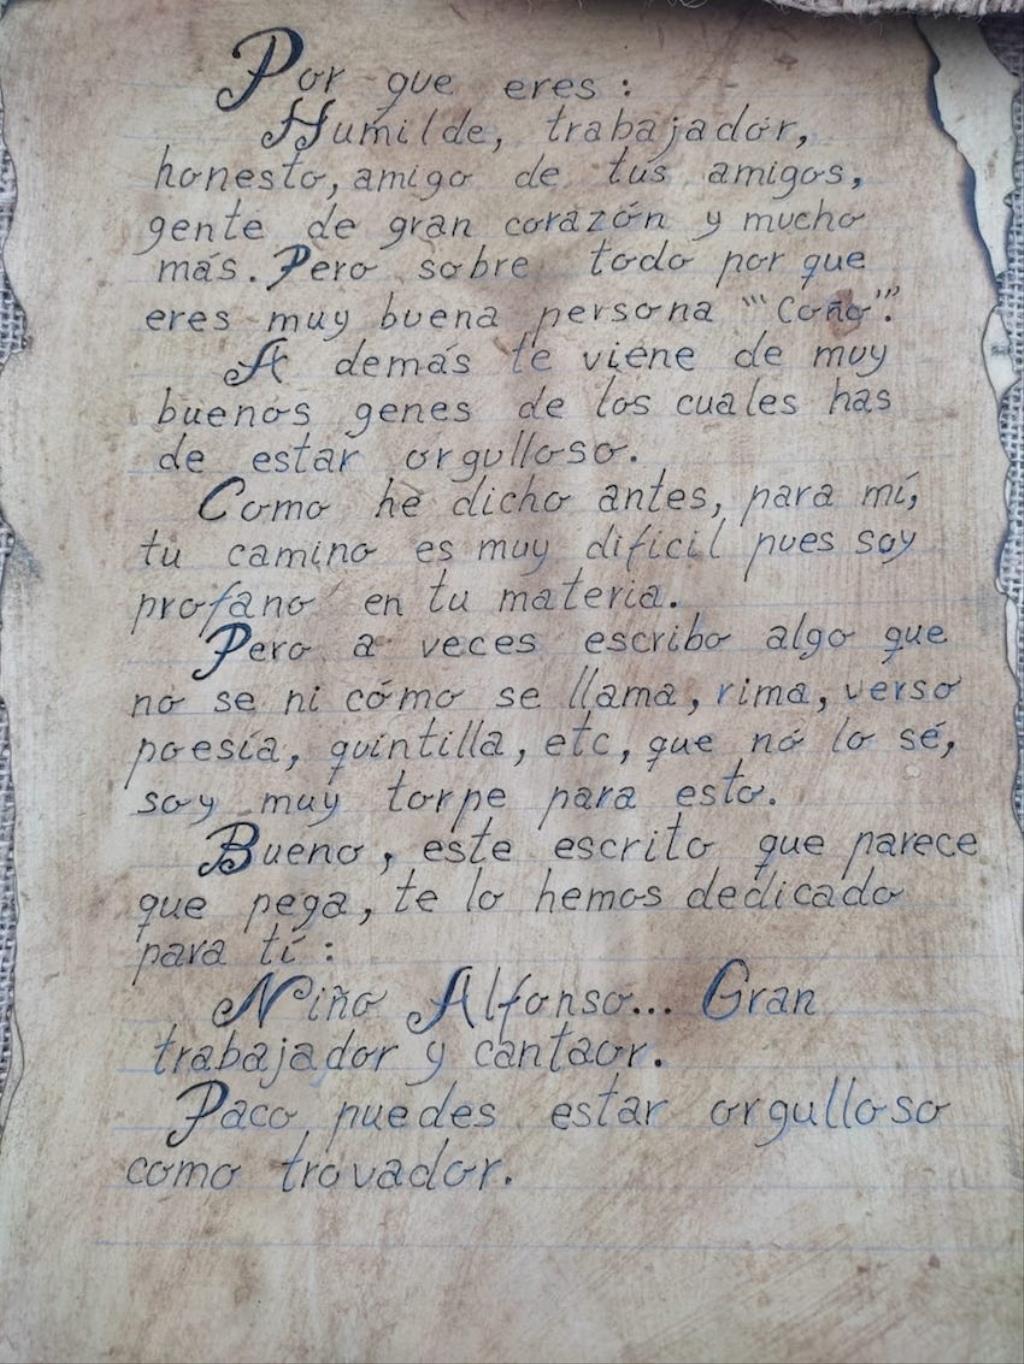 Por que eres:
Humilde, trabajador,
honesto, amigo de tus amigos,
gente de gran corazón y mucho
más. Pero sobre todo por que
eres muy buena persona "'Coño'".
A demás te viene de muy
buenos genes de los cuales has
de estar orgulloso.
Como he dicho antes, para mí,
tu camino es muy dificil pues soy
profano en tu materia.
Pero a veces escribo algo que
no se ni cómo se llama, rima, verso
poesía, quintilla, etc, que no lo sé,
soy muy torpe para esto.
Bueno, este escrito que parece
que pega, te lo hemos dedicado
para tí:
Niño Alfonso... Gran
trabajador y cantaor.
Paco puedes estar orgulloso
como trovador.